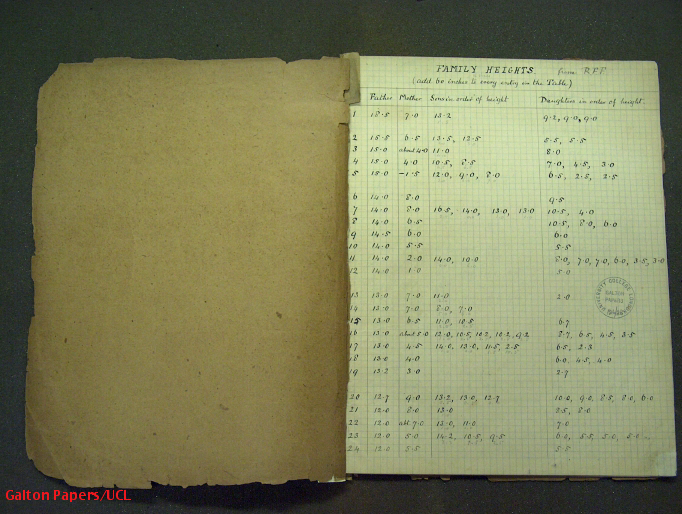 FAMILY HEIGHTS. from RFF
(add 60 inches to every entry in the Table)
Father Mother Sons in order of height Daughters in order of height.
1 18.5 7.0 13.2 9.2, 9.0, 9.0
2 15.5 6.5 13.5, 12.5 5.5, 5.5
3 15.0 about 4.0 11.0 8.0
4 15.0 4.0 10.5, 8.5 7.0, 4.5, 3.0
5 15.0 -1.5 12.0, 9.0, 8.0 6.5, 2.5, 2.5
6 14.0 8.0 9.5
7 14.0 8.0 16.5, 14.0, 13.0, 13.0 10.5, 4.0
8 14.0 6.5 10.5, 8.0, 6.0
9 14.5 6.0 6.0
10 14.0 5.5 5.5
11 14.0 2.0 14.0, 10.0 8.0, 7.0, 7.0, 6.0, 3.5, 3.0
12 14.0 1.0 5.0
13 13.0 7.0 11.0 2.0
14 13.0 7.0 8.0, 7.0
15 13.0 6.5 11.0, 10.5 6.7
16 13.0 about 5.0 12.0, 10.5, 10.2, 10.2, 9.2 8.7, 6.5, 4.5, 3.5
17 13.0 4.5 14.0, 13.0, 11.5, 2.5 6.5, 2.3
18 13.0 4.0 6.0, 4.5, 4.0
19 13.2 3.0 2.7
20 12.7 9.0 13.2, 13.0, 12.7 10.0, 9.0, 8.5, 8.0, 6.0
21 12.0 8.0 13.0 8.5, 8.0
22 12.0 abt 7.0 13.0, 11.0 7.0
23 12.0 5.0 14.2, 10.5, 9.5 6.0, 5.5, 5.0, 5.0
24 12.0 5.5 5.5
UNIVERSITY COLLEGE
GALTON
PAPERS
Galton Papers/UCL